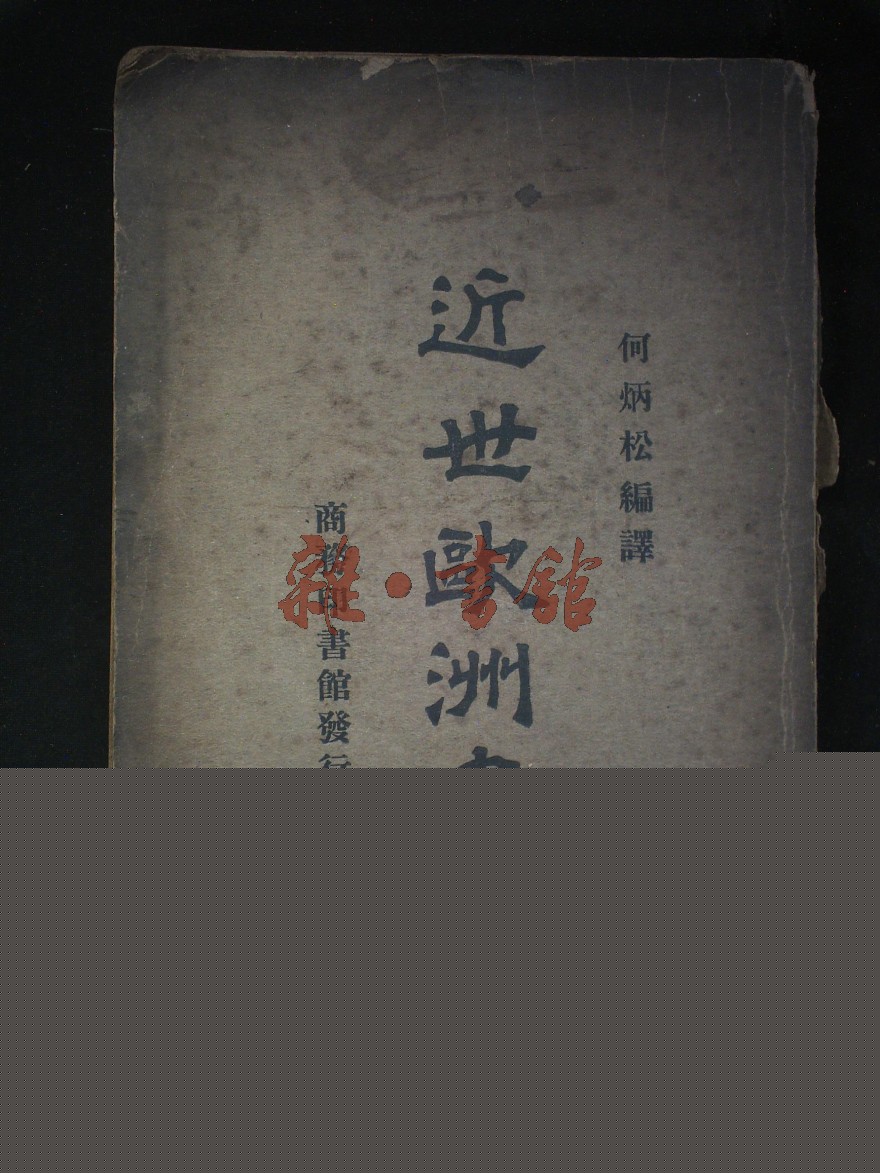 何炳松編譯
近世歐洲
商務印書館發行
雜·書館